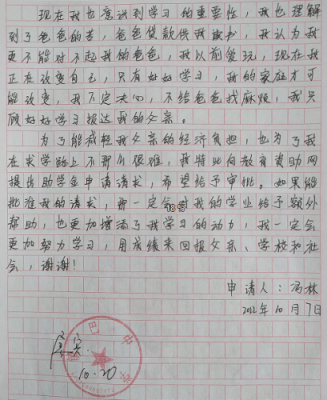 现在我也意识到学习的重要性，我也理解
到了爸爸的苦，爸爸贷款供我读书，我认为我
更不能对不起我的爸爸，我以前贪玩，现在我
正在改变自己，只有好好学习，我的家庭才可
能改变，我下定决心，不给爸爸找麻烦，我只
顾好好学习报达我的父亲。
为了能减轻我父亲的经济负担，也为了我
在求学路上不那么艰难，我特此向教育资助网
提出助学金申请请求，希望给予审批。如果能
批准我的请求，那一定会对我的学业给予额外
帮助，也更加增添了我学习的动力，我一定会
更加努力学习，用成绩来回报父亲、学校和社
会，谢谢！
申请人：冯林
2022年10月7日
10.20